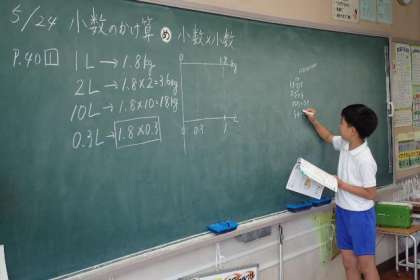 5/24 小数のかけ算 め 小数×小数
P.40 1
1L→1.8kg
2L→1.8×2=3.6kg
10L→1.8×10=18kg
0.3L→1.8×0.3
0 1.8 kg
0 0.3 1 L